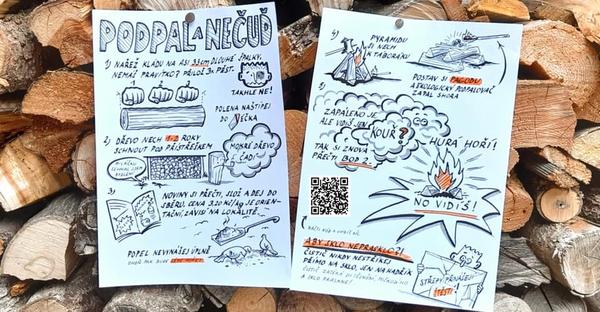 PODPAL A NEČUĎ
1) NAŘEŽ KLÁDU NA ASI 33cm DLOUHÉ ŠPALKY.
NEMÁŠ PRAVÍTKO? PŘILOŽ 3x PĚST.
TAKHLE NE!
POLENA NAŠTÍPEJ
DO VÉČKA
2) DŘEVO NECH 1-2 ROKY
SCHNOUT POD PŘÍSTŘEŠKEM
MOKRÉ DŘEVO
ČADÍ
3)
NOVINY SI PŘEČTI, SLOŽ A DEJ DO
SBĚRU. CENA 3,20 Kč/kg JE ORIEN-
TAČNÍ, ZÁVISÍ NA LOKALITĚ.
POPEL NEVYNÁŠEJ ÚPLNĚ
4)
PYRAMIDU
SI NECH
K TÁBORÁKU
POSTAV SI PAGODU
A EKOLOGICKÝ PODPALOVAČ
ZAPAL SHORA
5)
ZAPÁLENO JE,
ALE VIDÍŠ JEN
KOUŘ?
TAK SI ZNOVA
PŘEČTI BOD 2.
HURÁ HOŘÍ!
NO VIDÍŠ!
ABY SKLO NEPRASKLO?!
ČISTIČ NIKDY NESTŘÍKEJ
PŘÍMO NA SKLO, JEN NA HADŘÍK
A SKLO PRASKNE!
STŘEPY PŘINÁŠEJÍ
ŠTĚSTÍ!